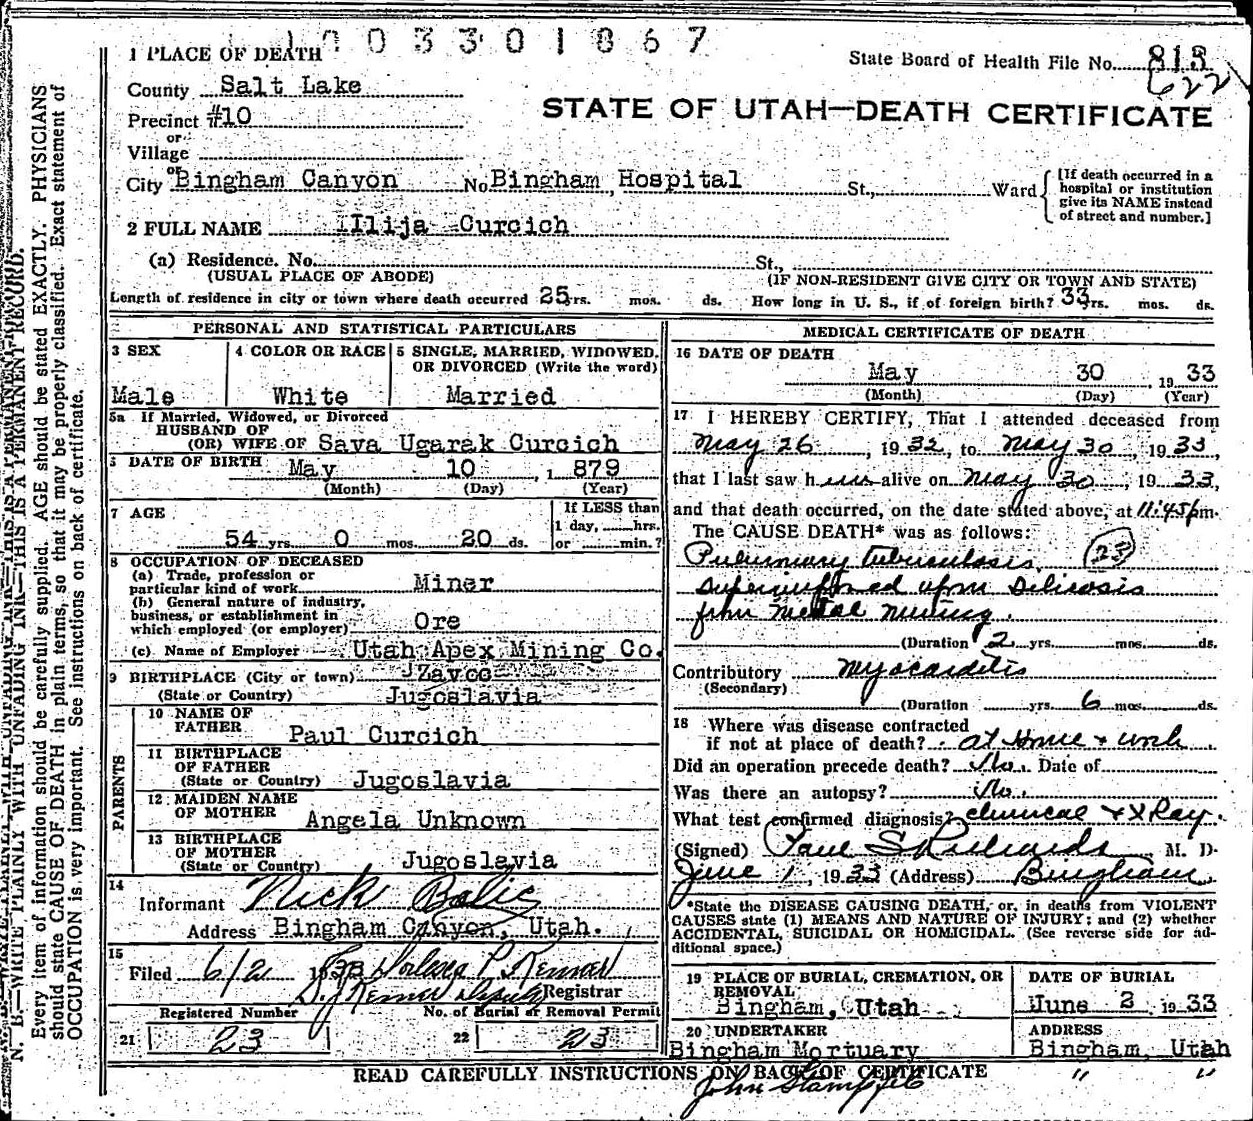 1003301867
1 PLACE OF DEATH
State Board of Health File No. 813
622
County Salt Lake
STATE OF UTAH—DEATH CERTIFICATE
Precinct #10
or
Village
or
City Bingham Canyon No. Bingham Hospital St., Ward
[If death occurred in a hospital or institution give its NAME instead of street and number.]
2 FULL NAME Ilija Curcich
(a) Residence. No. St.,
(USUAL PLACE OF ABODE) (IF NON-RESIDENT GIVE CITY OR TOWN AND STATE)
Length of residence in city or town where death occurred 25 yrs. mos. ds. How long in U. S., if of foreign birth? 33 yrs. mos. ds.
PERSONAL AND STATISTICAL PARTICULARS
3 SEX
Male
4 COLOR OR RACE
White
5 SINGLE, MARRIED, WIDOWED, OR DIVORCED (Write the word)
Married
5a If Married, Widowed, or Divorced
HUSBAND OF
(OR) WIFE OF Sava Ugarak Curcich
DATE OF BIRTH May 10, 1879
(Month) (Day) (Year)
7 AGE
54 yrs. 0 mos. 20 ds.
If LESS than
1 day, hrs.
or min.?
8 OCCUPATION OF DECEASED
(a) Trade, profession or
particular kind of work Miner
(b) General nature of industry,
business, or establishment in
which employed (or employer) Ore
(c) Name of Employer Utah Apex Mining Co.
9 BIRTHPLACE (City or town) Zavco
(State or Country) Jugoslavia
PARENTS
10 NAME OF
FATHER Paul Curcich
11 BIRTHPLACE
OF FATHER
(State or Country) Jugoslavia
12 MAIDEN NAME
OF MOTHER Angela Unknown
13 BIRTHPLACE
OF MOTHER
(State or Country) Jugoslavia
14
Informant Nick Balic
Address Bingham Canyon, Utah.
15
Filed 6/2 1933
Registrar
Registered Number
21 23
No. of Burial or Removal Permit
22 23
MEDICAL CERTIFICATE OF DEATH
16 DATE OF DEATH
May 30, 1933
(Month) (Day) (Year)
17 I HEREBY CERTIFY, That I attended deceased from
May 26, 1932, to May 30, 1933,
that I last saw him alive on May 30, 1933,
and that death occurred, on the date stated above, at 11:45 pm.
The CAUSE DEATH* was as follows:
Pulmonary tuberculosis, 23
superimposed upon Silicosis
from Metal Mining.
(Duration 2 yrs. mos. ds.
Contributory Myocarditis
(Secondary)
(Duration yrs. 6 mos. ds.
18 Where was disease contracted
if not at place of death? at Home & work
Did an operation precede death? No. Date of
Was there an autopsy? No.
What test confirmed diagnosis? clinical & X Ray.
(Signed) Paul S Richards M. D.
June 1, 1933 (Address) Bingham.
*State the DISEASE CAUSING DEATH, or, in deaths from VIOLENT
CAUSES state (1) MEANS AND NATURE OF INJURY; and (2) whether
ACCIDENTAL, SUICIDAL OR HOMICIDAL. (See reverse side for ad-
ditional space.)
19 PLACE OF BURIAL, CREMATION, OR
REMOVAL
Bingham, Utah
DATE OF BURIAL
June 2 1933
20 UNDERTAKER
Bingham Mortuary
ADDRESS
Bingham, Utah
READ CAREFULLY INSTRUCTIONS ON BACK OF CERTIFICATE
John " "
N. B.—WRITE PLAINLY WITH UNFADING INK—THIS IS A PERMANENT RECORD.
Every item of information should be carefully supplied. AGE should be stated EXACTLY. PHYSICIANS
should state CAUSE OF DEATH in plain terms, so that it may be properly classified. Exact statement of
OCCUPATION is very important. See instructions on back of certificate.